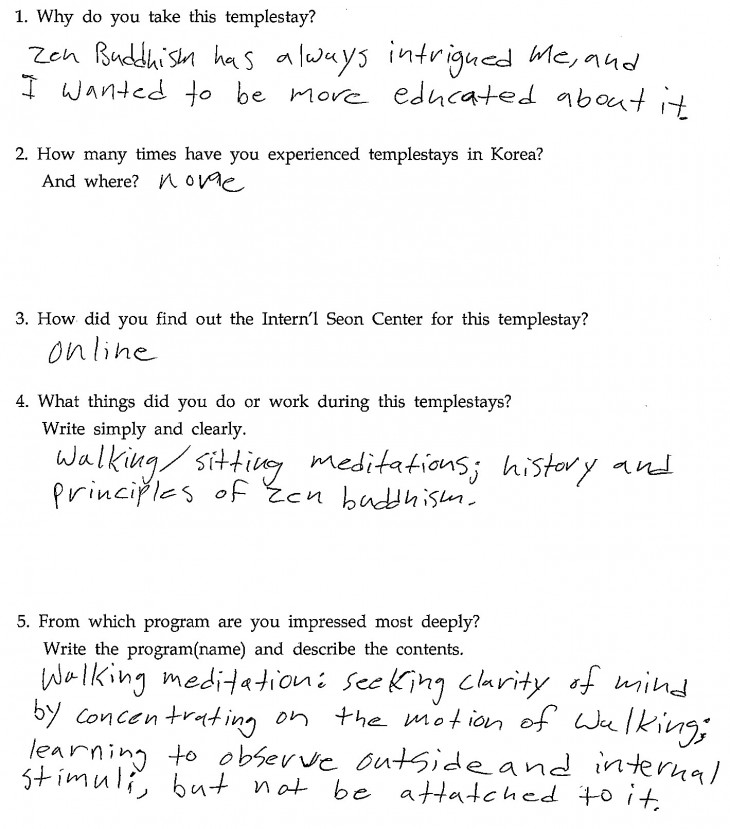 1. Why do you take this templestay?
Zen Buddhism has always intrigued me, and
I wanted to be more educated about it
2. How many times have you experienced templestays in Korea?
And where? none
3. How did you find out the Intern'l Seon Center for this templestay?
online
4. What things did you do or work during this templestays?
Write simply and clearly.
Walking/sitting meditations; history and
principles of Zen buddhism.
5. From which program are you impressed most deeply?
Write the program(name) and describe the contents.
Walking meditation: seeking clarity of mind
by concentrating on the motion of walking;
learning to observe outside and internal
stimuli, but not be attatched to it.